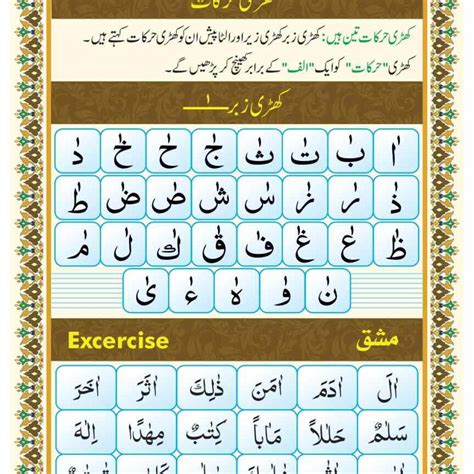 کھڑی حرکات
کھڑی حرکات تین ہیں: کھڑی زبر کھڑی زیر اور الٹا پیش ان کو کھڑی حرکات کہتے ہیں۔
کھڑی "حرکات" کو ایک "الف" کے برابر کھینچ کر پڑھیں گے۔
کھڑی زبر ـٰ
اٰ بٰ تٰ ثٰ جٰ حٰ خٰ دٰ
ذٰ رٰ زٰ سٰ شٰ صٰ ضٰ طٰ
ظٰ عٰ غٰ فٰ قٰ كٰ لٰ مٰ
نٰ وٰ هٰ ءٰ یٰ
مشق Excercise
اٰلَ اٰدَمَ اٰمَنَ ذٰلِكَ اٰثَرَ اٰخَرَ
سَلٰمٌ حَلٰلًا مَاٰبًا كِتٰبٌ مِهٰدًا اِلٰهَ